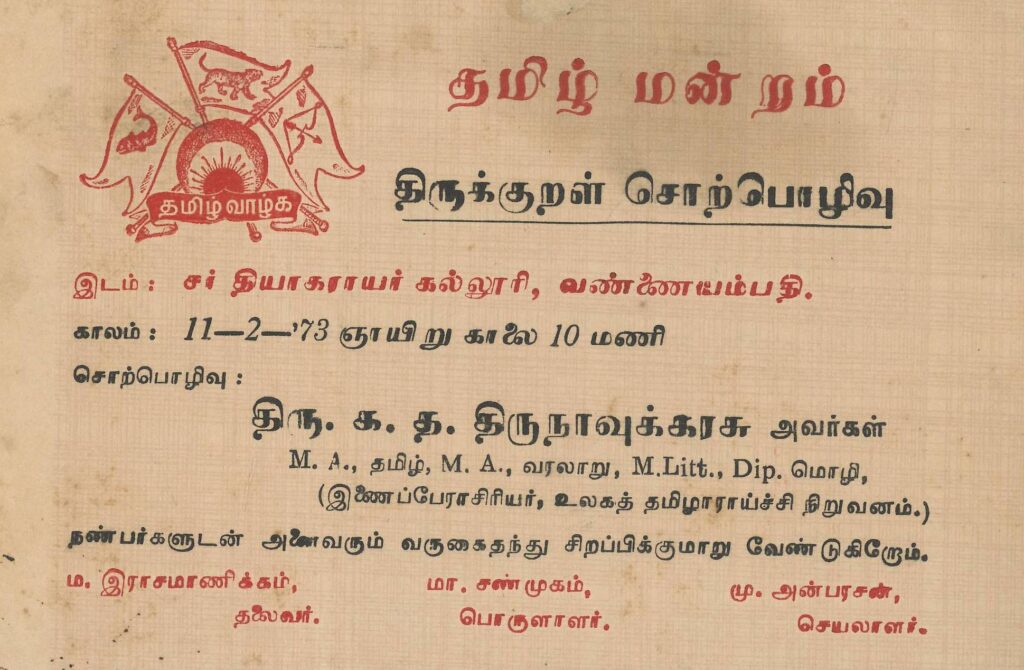 தமிழ் மன்றம்
தமிழ்வாழ்க
திருக்குறள் சொற்பொழிவு
இடம் : சர் தியாகராயர் கல்லூரி, வண்ணையம்பதி.
காலம் : 11—2—'73 ஞாயிறு காலை 10 மணி
சொற்பொழிவு :
திரு. க. த. திருநாவுக்கரசு அவர்கள்
M. A., தமிழ், M. A., வரலாறு, M.Litt., Dip. மொழி,
(இணைப்பேராசிரியர், உலகத் தமிழாராய்ச்சி நிறுவனம்.)
நண்பர்களுடன் அனைவரும் வருகைதந்து சிறப்பிக்குமாறு வேண்டுகிறோம்.
ம. இராசமாணிக்கம், மா. சண்முகம், மு. அன்பரசன்,
தலைவர். பொருளாளர். செயலாளர்.